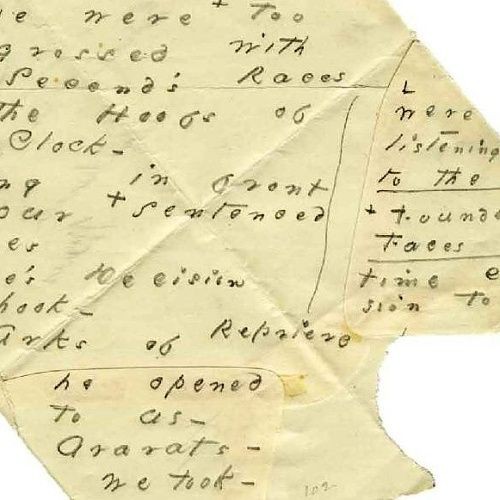 e were + too
gressed with
Second's Races
the Hoofs of
Clock -
ng in front
our + sentenced
es
e's Decision
hook -
arks of Reprieve
he opened
to as -
Ararats -
we took -
+ were
listening
to the
+ tounde
Faces
time e
sion to
102